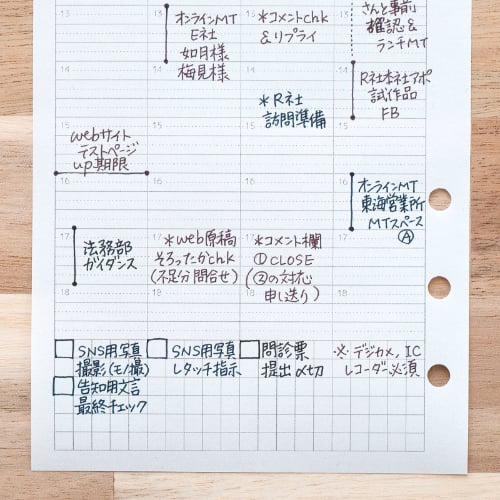 オンラインMT
E社
如月様
梅見様
*コメントchk
&リプライ
さんと事前
確認&
ランチMT
13
13
13
14
14
14
14
*R社
訪問準備
R社本社アポ
試作品
FB
15
15
15
15
webサイト
テストページ
up期限
16
16
16
16
オンラインMT
東海営業所
MTスペース
Ⓐ
17
17
17
17
法務部
ガイダンス
*web原稿
そろったかchk
(不足分問合せ)
*コメント欄
①CLOSE
(②の対応
申し送り)
18
18
18
18
SNS用写真
撮影(モノ撮)
告知用文言
最終チェック
SNS用写真
レタッチ指示
問診票
提出〆切
※デジカメ、IC
レコーダー必須